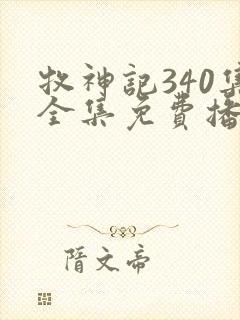 牧神記340集
全集免費播
隋文帝